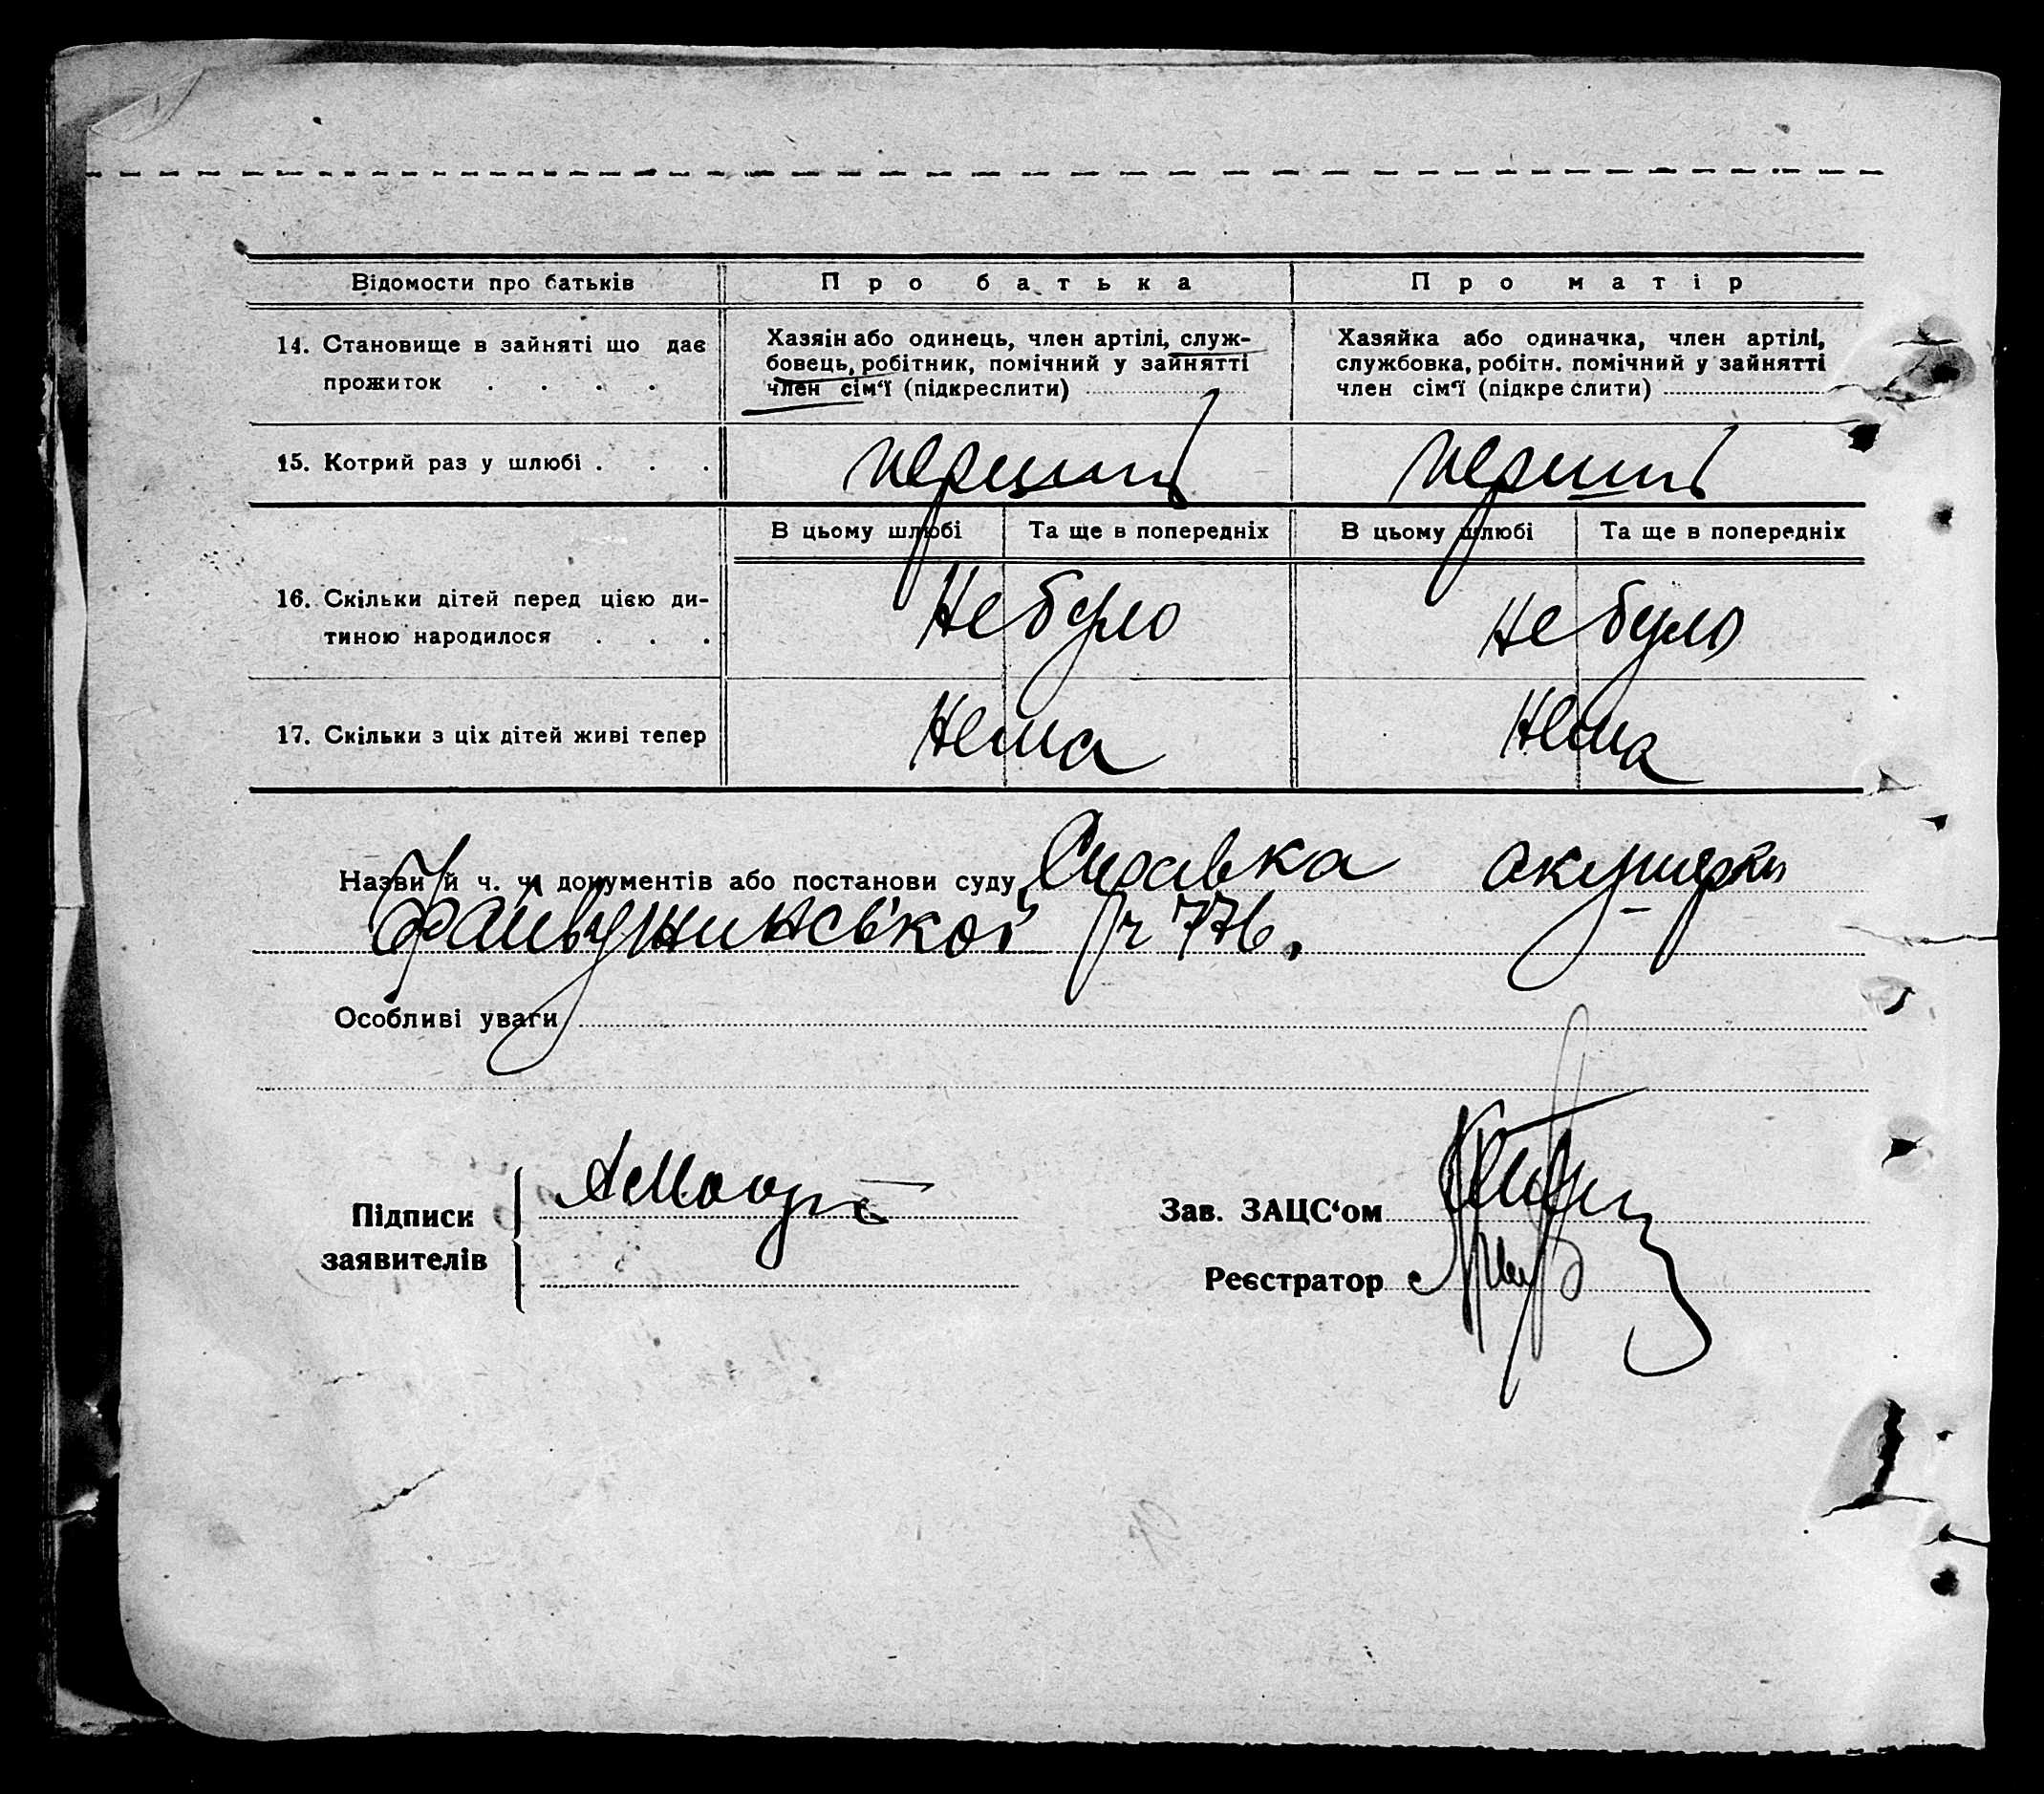 Відомости про батьків Про батька Про матір
14. Становище в зайняті що дає
прожиток . . . .
Хазяїн або одинець, член артілі, служ-
бовець, робітник, помічний у зайнятті
член сім'ї (підкреслити)
Хазяйка або одиначка, член артілі,
службовка, робітн. помічний у зайнятті
член сім'ї (підкреслити)
15. Котрий раз у шлюбі . . . перший перший
В цьому шлюбі Та ще в попередніх В цьому шлюбі Та ще в попередніх
16. Скільки дітей перед цією ди-
тиною народилося . . .
Не було Не було
17. Скільки з ціх дітей живі тепер Нема Нема
Назви й ч. ч. документів або постанови суду Справка акушерки
ч 776.
Особливі уваги
Підписк
заявителів
Зав. ЗАЦС'ом
Реєстратор